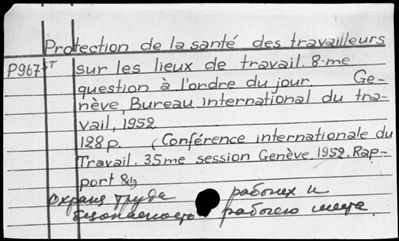 Protection de la santé des travailleurs
P967ST sur les lieux de travail. 8-me
question à l'ordre du jour Ge-
nève, Bureau international du tra-
vail, 1952
128p. (Conférence internationale du
Travail. 35me session Genève. 1952. Rap-
port 8
охрана труда рабочих и
безопасность рабочего места.